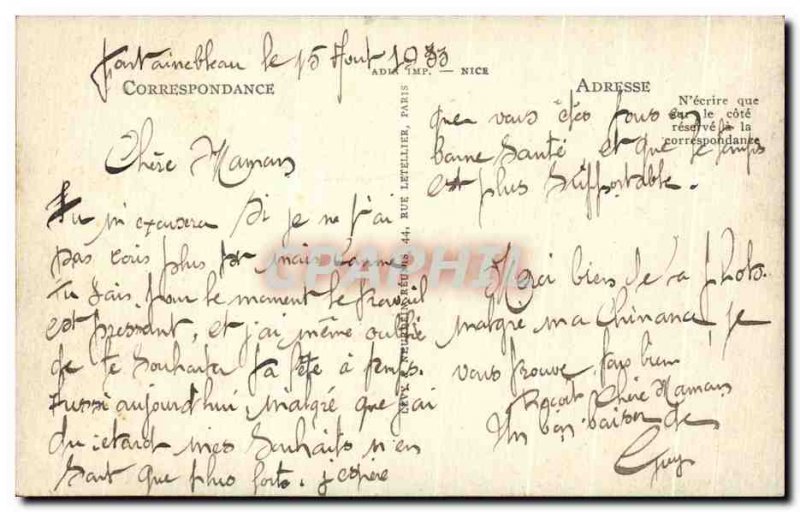 Fontainebleau le 15 Aout 1933
ADIA IMP. — NICE
CORRESPONDANCE
Chère Maman
Tu m'excusera si je ne t'ai
pas écris plus tot mais comme
tu sais, pour le moment le travail
est pressant, et j'ai même oublié
de te souhaiter ta fête à temps.
Aussi aujourd'hui, malgré que j'ai
du retard mes souhaits n'en
sont que plus forts. j'espère
LEVY & NEURDEIN RÉUNIS 44, RUE LETELLIER, PARIS
ADRESSE
N'écrire que
sur le côté
réservé à la
correspondance
que vous êtes tous en
bonne santé et que le temps
est plus supportable.
Merci bien de ta photo
malgré ma je
vous trouve bien
Reçoit Chère Maman
Un bon baiser de
Guy
CPAPHIL